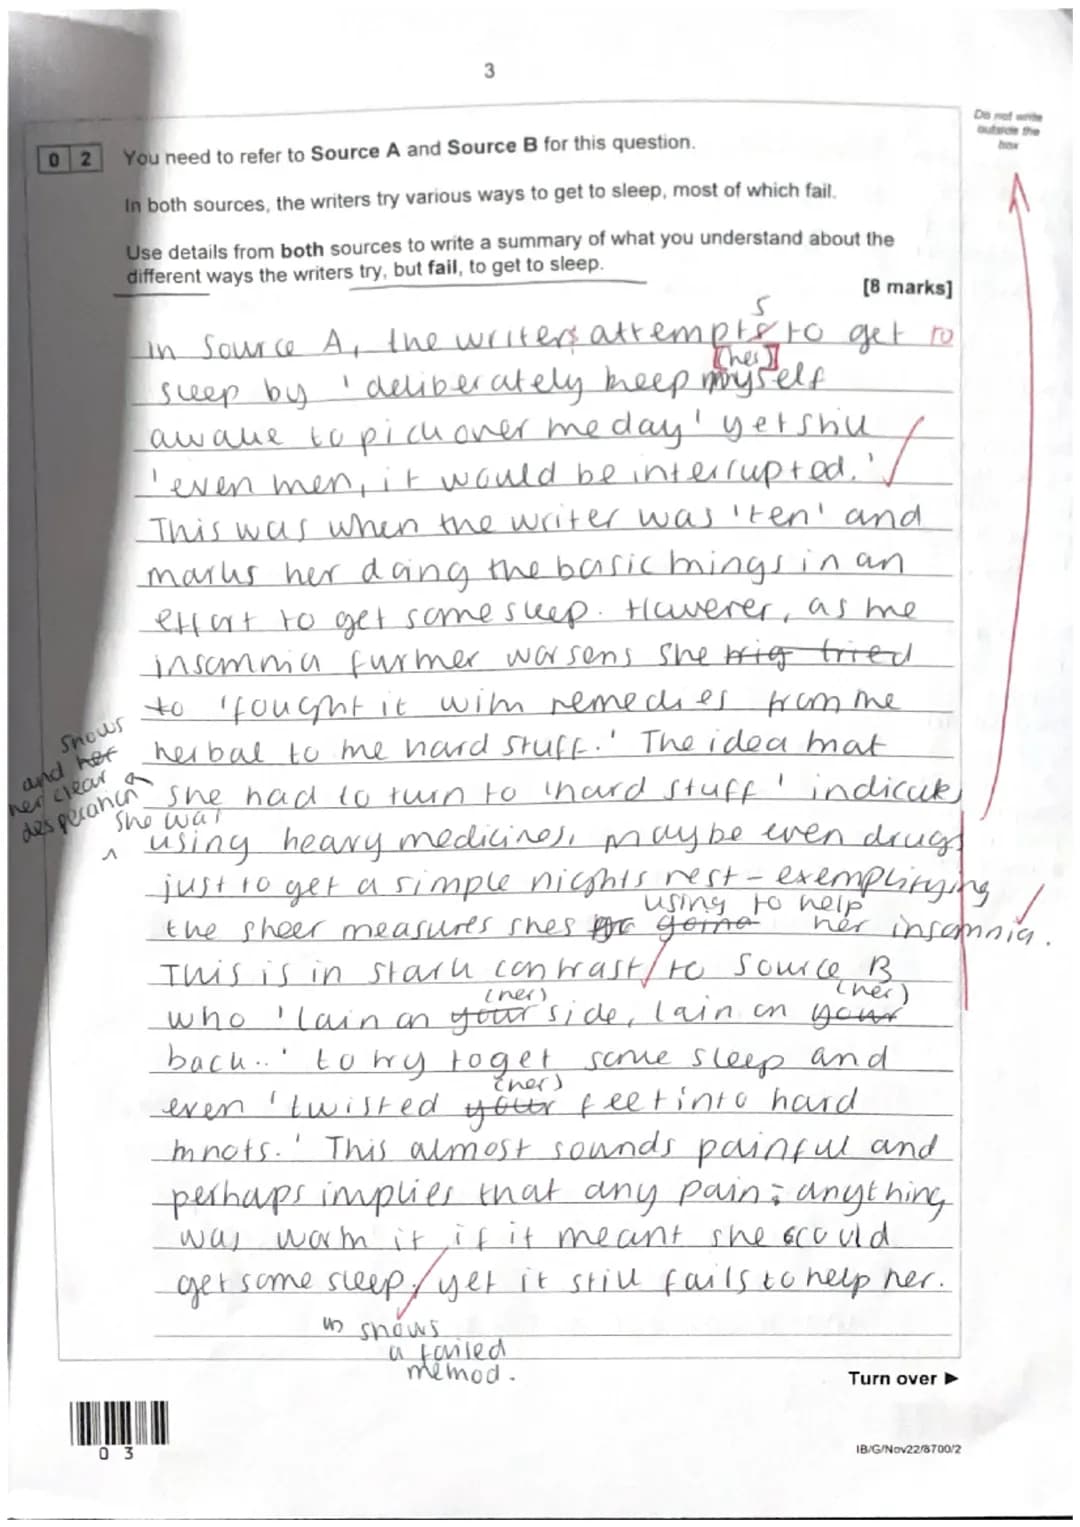 3
Do not write
outside the
box
0 2 You need to refer to Source A and Source B for this question.
In both sources, the writers try various ways to get to sleep, most of which fail.
Use details from both sources to write a summary of what you understand about the
different ways the writers try, but fail, to get to sleep.
[8 marks]
In Source A, the writers attempts to get to
sleep by 'deliberately keep [her] myself
awake to pick over the day' yet still
'even then, it would be interrupted.'
This was when the writer was 'ten' and
marks her doing the basic things in an
effort to get some sleep. However, as the
insomnia further worsens she tried
to 'fought it with remedies from the
herbal to the hard stuff.' The idea that
shows
and her
her clear
desperation
she had to turn to 'hard stuff' indicates
she was
using heavy medicines, maybe even drugs
just to get a simple nights rest - exemplifying
using to help
the sheer measures shes going her insomnia.
This is in stark contrast to Source B
(her) (her)
who 'lain on your side, lain on your
back..' to try to get some sleep and
(her)
even 'twisted your feet into hard
knots.' This almost sounds painful and
perhaps implies that any pain; anything
was worth it if it meant she could
get some sleep, yet it still fails to help her.
shows
a failed
method.
Turn over ►
0 3
IB/G/Nov22/8700/2